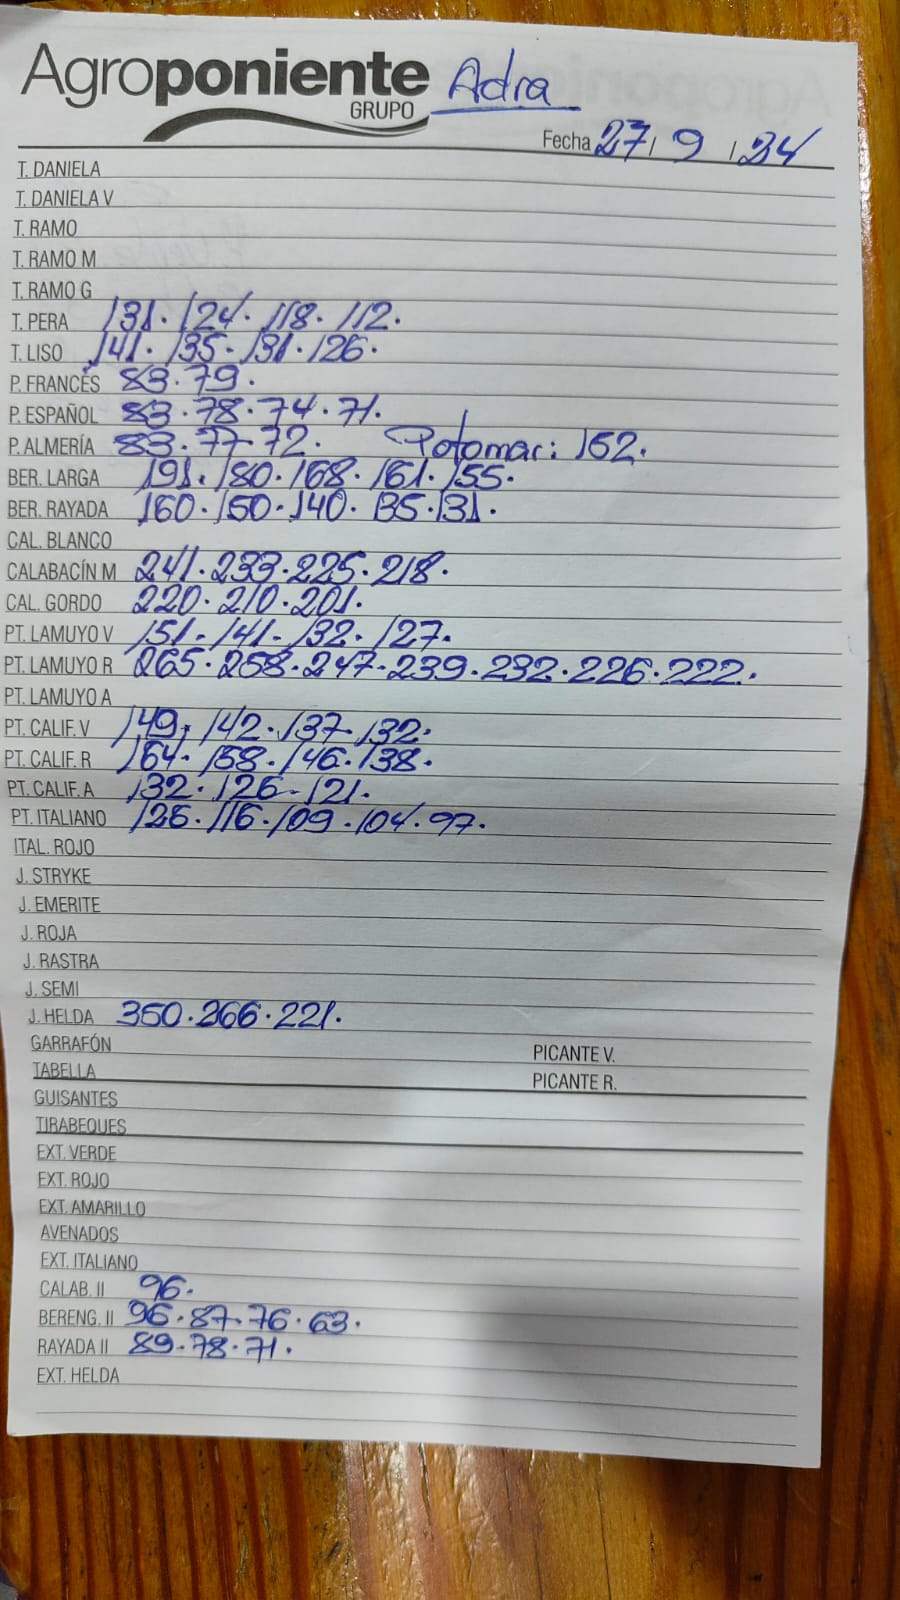 Agroponiente
GRUPO
Adra
Fecha 27/ 9 /24
T. DANIELA
T. DANIELA V
T. RAMO
T. RAMO M
T. RAMO G
T. PERA 131. 124. 118. 112.
T. LISO 141. 135. 131. 126.
P. FRANCÉS 83.79.
P. ESPAÑOL 83.78.74.71.
P. ALMERÍA 83.77-72. Potomar: 152.
BER. LARGA 191. 180. 168. 161. 155.
BER. RAYADA 160. 150. 140. 135. 131.
CAL. BLANCO
CALABACÍN M 241.233.225.218.
CAL. GORDO 220.210.201.
PT. LAMUYO V 151. 141. 132. 127.
PT. LAMUYO R 265.258.247-239.232.226.222.
PT. LAMUYO A
PT. CALIF. V 149. 142. 137. 132.
PT. CALIF. R 164. 158. 146. 138.
PT. CALIF. A 132. 126-121.
PT. ITALIANO 126. 116. 109. 104. 97.
ITAL. ROJO
J. STRYKE
J. EMERITE
J. ROJA
J. RASTRA
J. SEMI
J. HELDA 350.266.221.
GARRAFÓN PICANTE V.
TABELLA PICANTE R.
GUISANTES
TIRABEQUES
EXT. VERDE
EXT. ROJO
EXT. AMARILLO
AVENADOS
EXT. ITALIANO
CALAB. II 96.
BERENG. II 96.87-76.63.
RAYADA II 89-78.71.
EXT. HELDA